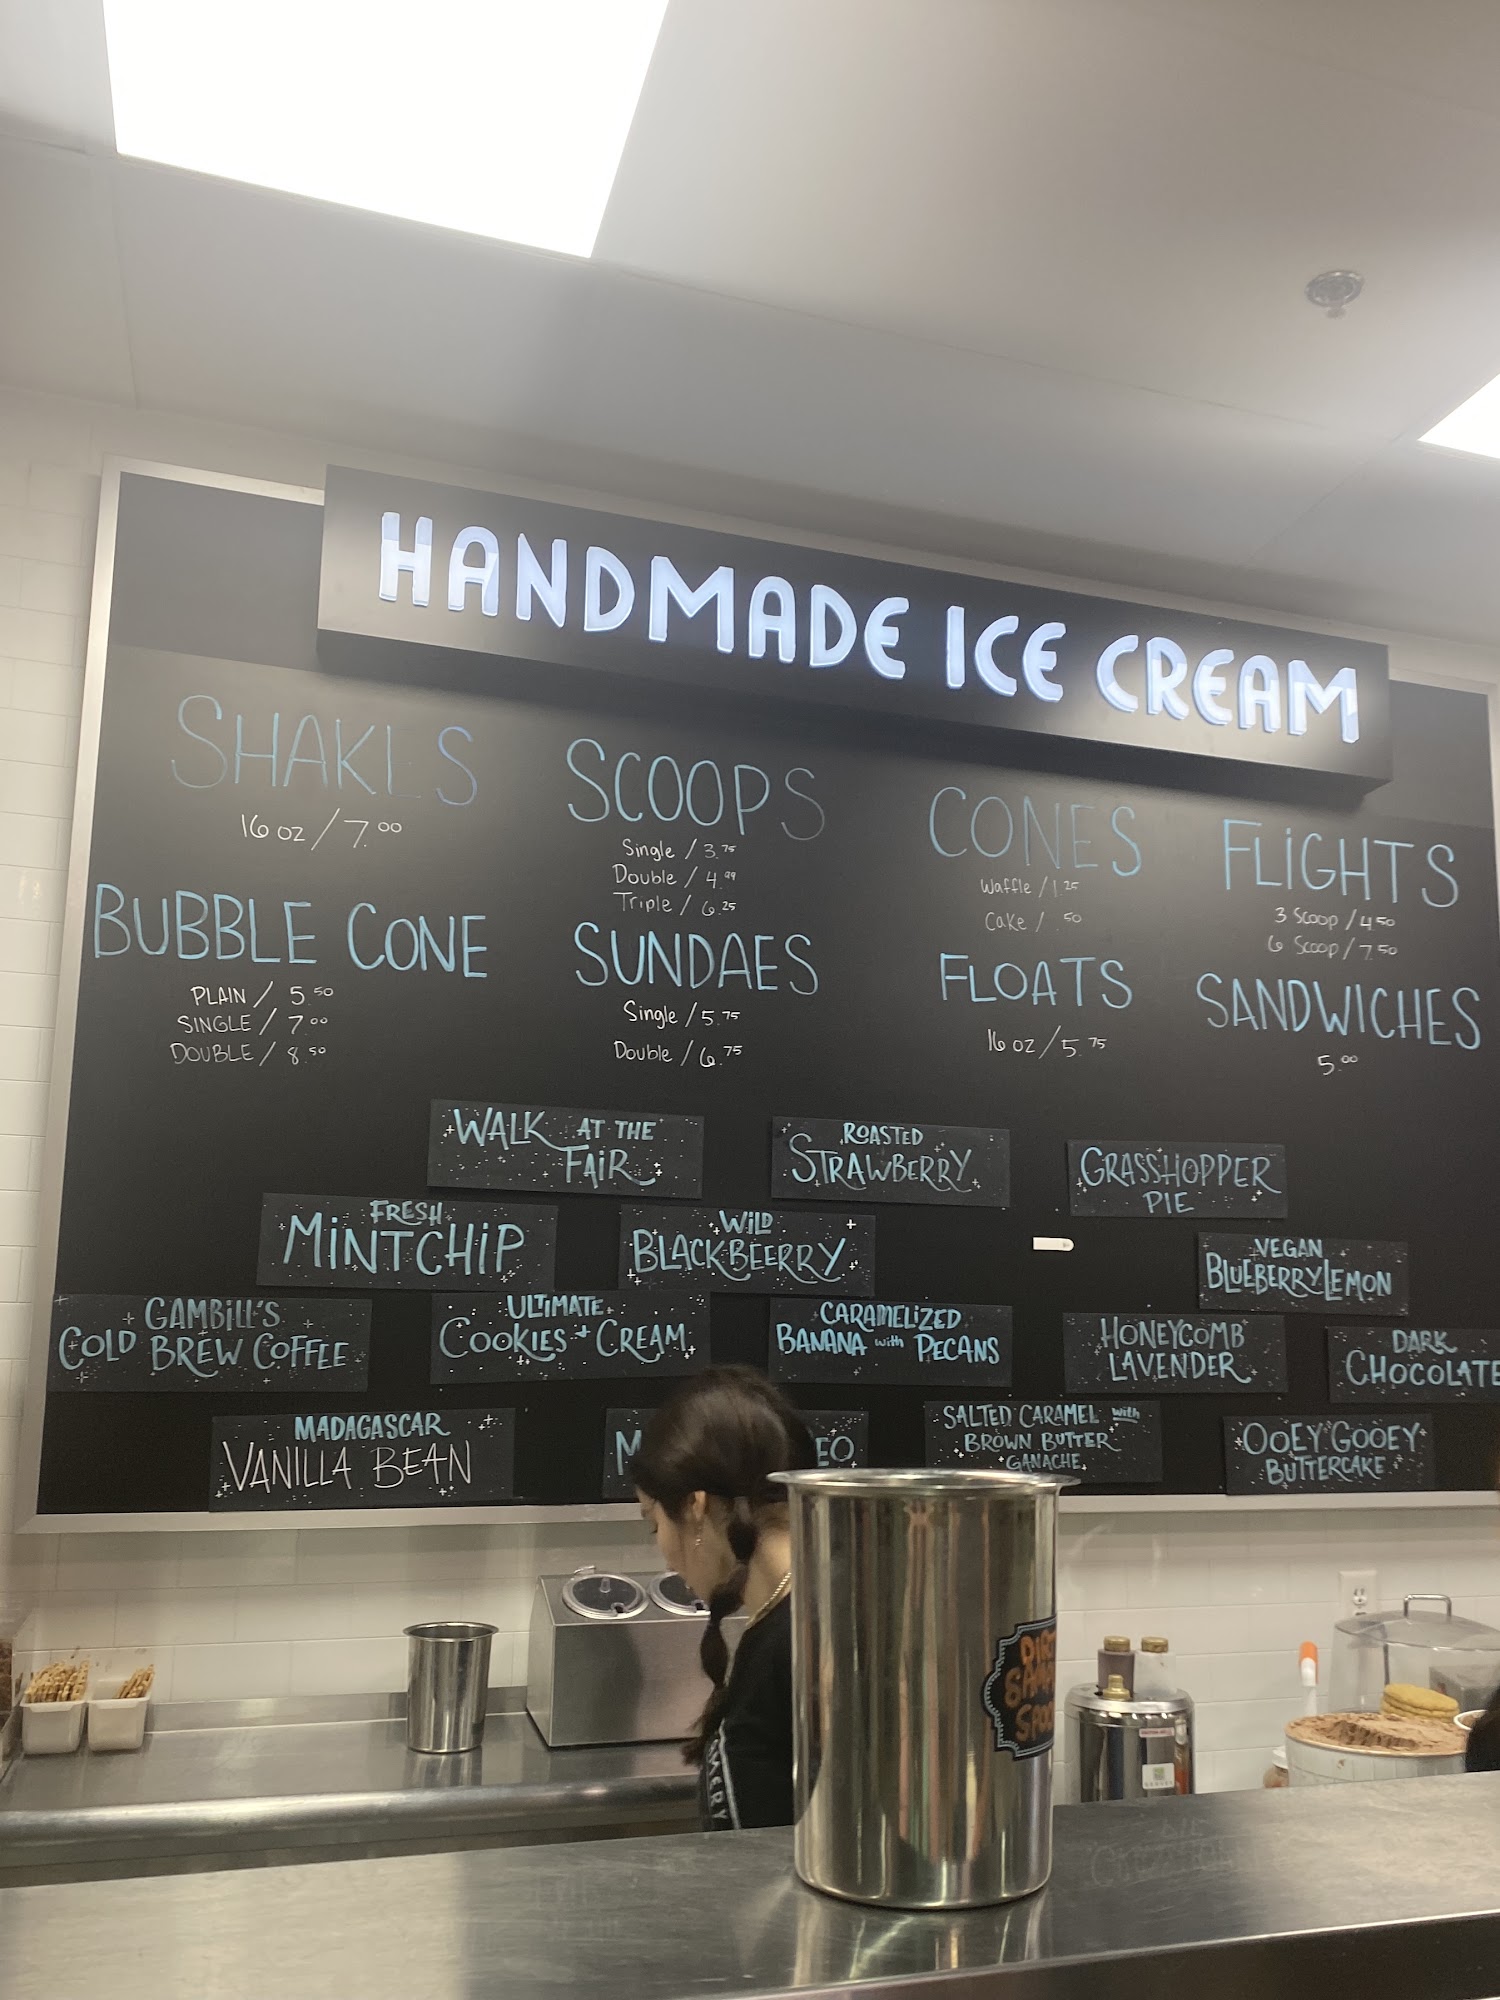 HANDMADE ICE CREAM
SHAKES
16 oz / 7.00
SCOOPS
Single / 3.75
Double / 4.99
Triple / 6.25
CONES
Waffle / 1.25
Cake / .50
FLIGHTS
3 Scoop / 4.50
6 Scoop / 7.50
BUBBLE CONE
PLAIN / 5.50
SINGLE / 7.00
DOUBLE / 8.50
SUNDAES
Single / 5.75
Double / 6.75
FLOATS
16 oz / 5.75
SANDWICHES
5.00
WALK AT THE
FAIR
ROASTED
STRAWBERRY
GRASSHOPPER
PIE
FRESH
MINTCHIP
WILD
BLACKBEERRY
VEGAN
BLUEBERRY LEMON
GAMBILL'S
COLD BREW COFFEE
ULTIMATE
COOKIES + CREAM
CARAMELIZED
BANANA with PECANS
HONEYCOMB
LAVENDER
DARK
CHOCOLATE
MADAGASCAR
VANILLA BEAN
SALTED CARAMEL with
BROWN BUTTER
GANACHE
OOEY GOOEY
BUTTERCAKE